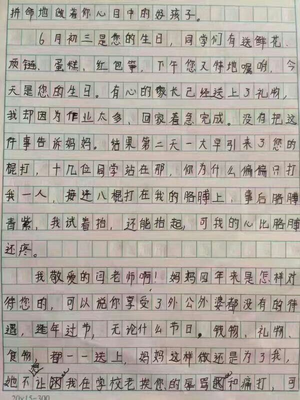 拼命地做着你心目中的好孩子。
6月初三是您的生日，同学们有送鲜花、
项链、蛋糕、红包等，下午您又伴咐嘱咐，今
天是您的生日。有心的家长已经送上了礼物，
我却因为作业太多，回家着急完成。没有把这
件事告诉妈妈。结果第二天一大早引来了您的
棍打，十几位同学站在那，你为什么偏偏只打
我一人，接连八棍打在我的胳膊上，事后胳膊
青紫，我试着抬，还能抬起，可我的心比胳膊
还疼。
我敬爱的闫老师啊！妈妈四年来是怎样对
待您的，可以说你享受了外公外婆都没有的待
遇，逢年过节，无论什么节日。钱物，礼物．
食物，都一一送上，妈妈这样做还是为了我，
她不让我在学校老挨你的辱骂和痛打，可
20×15=300